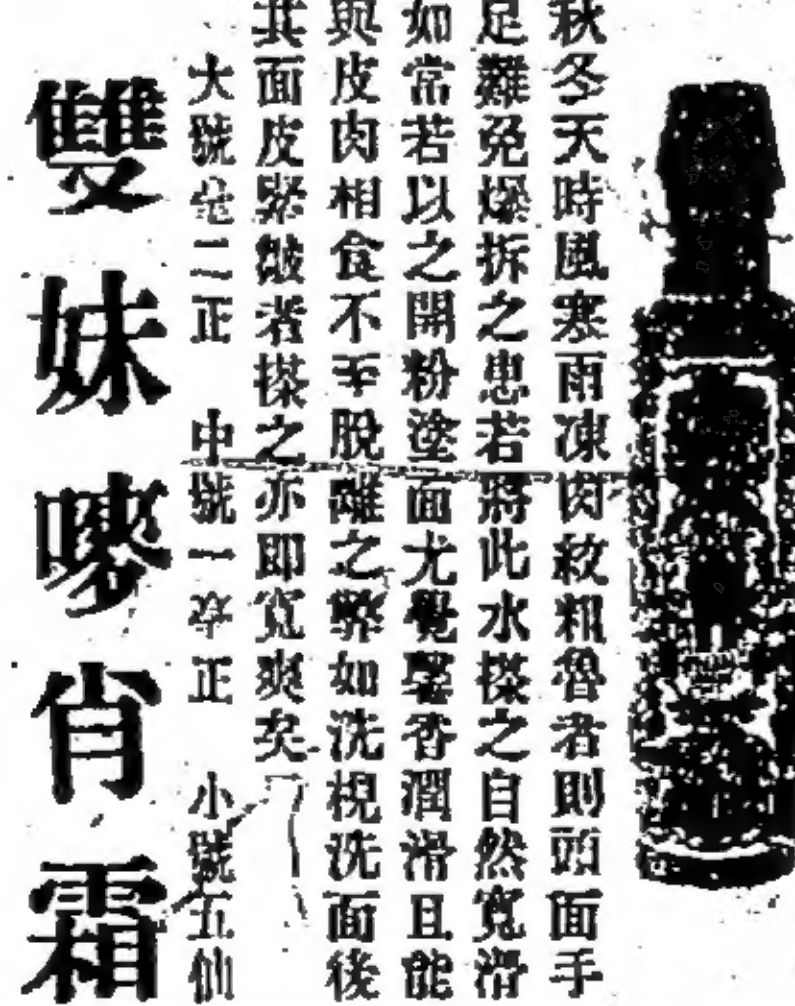 秋冬天時風寒雨凍肉紋粗魯者則頭面手
足難免爆拆之患若將此水搽之自然寬滑
如常若以之開粉塗面尤覺馨香潤滑且能
與皮肉相食不至脫離之弊如洗梘洗面後
其面皮緊皺者搽之亦即寬爽矣
大號毫二正 中號一毫正 小號五仙
雙妹嘜肖霜